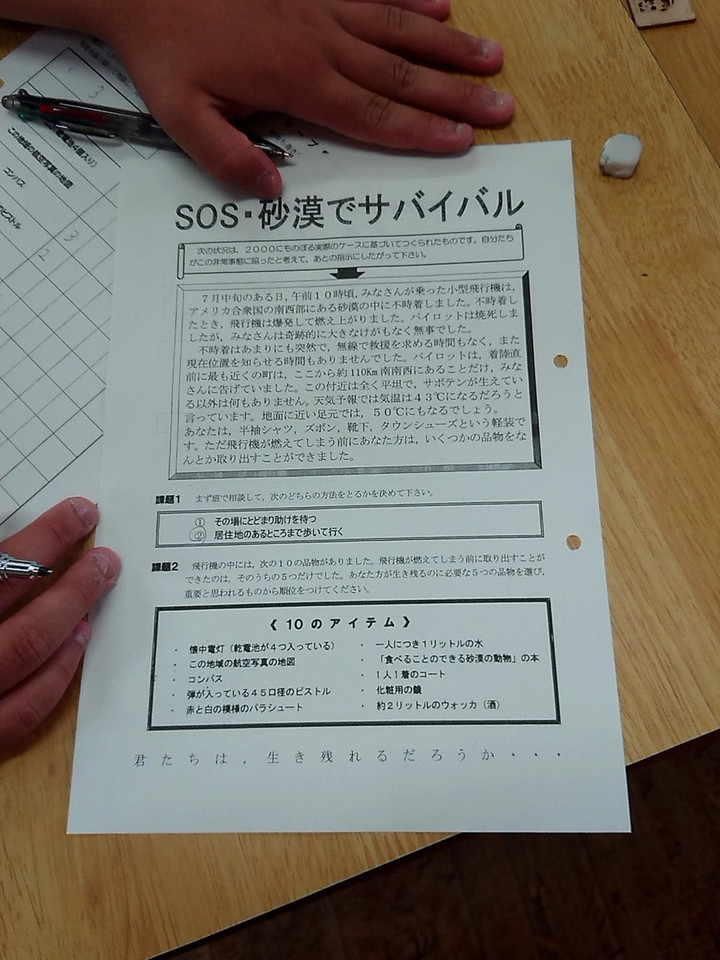 この地域の航空写真の地図
コンパス
3
3
2
SOS・砂漠でサバイバル
次の状況は、２０００にものぼる実際のケースに基づいてつくられたものです。自分たち
がこの非常事態に陥ったと考えて、あとの指示にしたがって下さい。
７月中旬のある日，午前１０時頃，みなさんが乗った小型飛行機は，
アメリカ合衆国の南西部にある砂漠の中に不時着しました。不時着し
たとき，飛行機は爆発して燃え上がりました。パイロットは焼死しま
したが，みなさんは奇跡的に大きなけがもなく無事でした。
不時着はあまりにも突然で，無線で救援を求める時間もなく，また
現在位置を知らせる時間もありませんでした。パイロットは，着陸直
前に最も近くの町は，ここから約110Km 南南西にあることだけ，みな
さんに告げていました。この付近は全く平坦で，サボテンが生えてい
る以外は何もありません。天気予報では気温は４３℃になるだろうと
言っています。地面に近い足元では，５０℃にもなるでしょう。
あなたは，半袖シャツ，ズボン，靴下，タウンシューズという軽装で
す。ただ飛行機が燃えてしまう前にあなた方は，いくつかの品物をな
んとか取り出すことができました。
課題1 まず班で相談して，次のどちらの方法をとるかを決めて下さい。
① その場にとどまり助けを待つ
② 居住地のあるところまで歩いて行く
課題2 飛行機の中には，次の１０の品物がありました。飛行機が燃えてしまう前に取り出すことが
できたのは，そのうちの５つだけでした。あなた方が生き残るのに必要な５つの品物を選び，
重要と思われるものから順位をつけてください。
《 10 の ア イ テ ム 》
・ 懐中電灯（乾電池が４つ入っている）
・ この地域の航空写真の地図
・ コンパス
・ 弾が入っている４５口径のピストル
・ 赤と白の模様のパラシュート
・ 一人につき１リットルの水
・ 「食べることのできる砂漠の動物」の本
・ １人１着のコート
・ 化粧用の鏡
・ 約２リットルのウォッカ（酒）
君 た ち は ， 生 き 残 れ る だ ろ う か ・ ・ ・